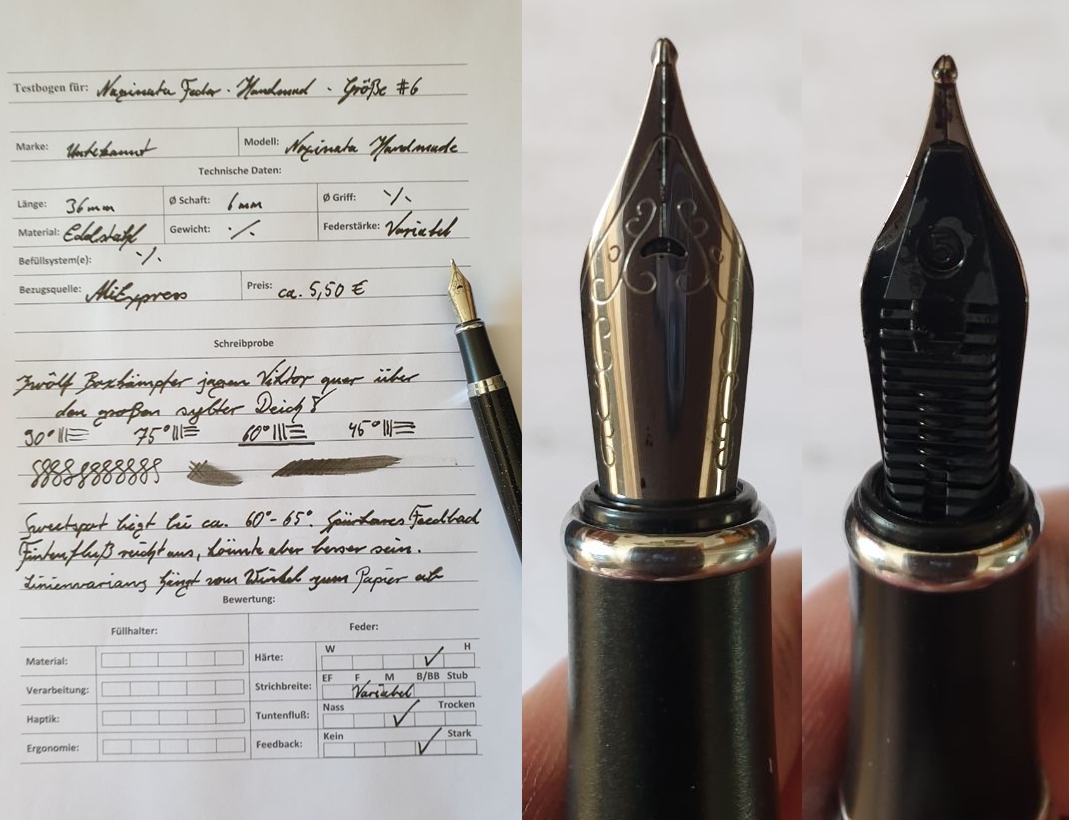 Testbogen für: Naginata Feder - Handmad - Größe #6
Marke: Unbekannt Modell: Naginata Handmade
Technische Daten:
Länge: 36mm Ø Schaft: 6mm Ø Griff: ·/.
Material: Edelstahl Gewicht: ·/. Federstärke: Variabel
Befüllsystem(e): ·/.
Bezugsquelle: AliExpress Preis: ca. 5,50 €
Schreibprobe
Zwölf Boxkämpfer jagen Viktor quer über
den großen sylter Deich!
90° 75° 60° 45°
Sweetspot liegt bei ca. 60°-65°. Spürbares Feedback
Tintenfluß reicht aus, könnte aber besser sein.
Linienvarianz hängt vom Winkel zum Papier ab
Bewertung:
Füllhalter: Feder:
Material: Härte: W H
Verarbeitung: Strichbreite: EF F M B/BB Stub
Variabel
Haptik: Tuntenfluß: Nass Trocken
Ergonomie: Feedback: Kein Stark
5